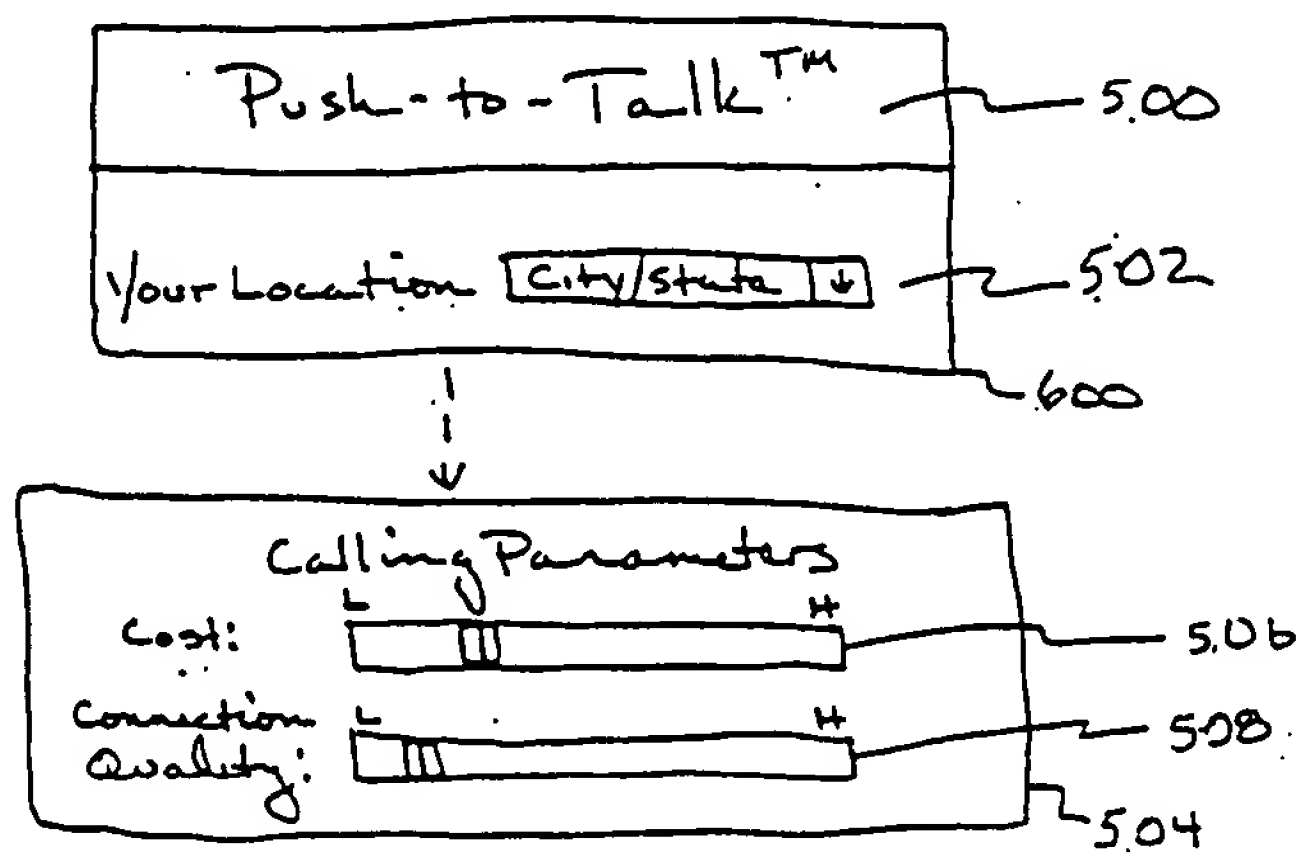 Push-to-Talk™ 500
Your Location City/State ↓ 502
600
Calling Parameters
L H
Cost: 506
Connection L H
Quality: 508
504